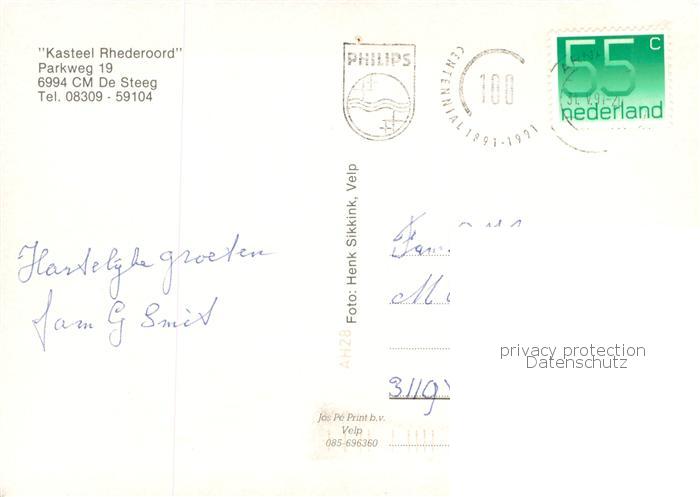 "Kasteel Rhederoord"
Parkweg 19
6994 CM De Steeg
Tel. 08309 - 59104
PHILIPS
CENTENNIAL 1891-1991
100
55 c
nederland
Foto: Henk Sikkink, Velp
Hartelijke groeten
fam G Smit
Fam.
3119
AH28
Jos Pé Print b.v.
Velp
085-696360
privacy protection
Datenschutz